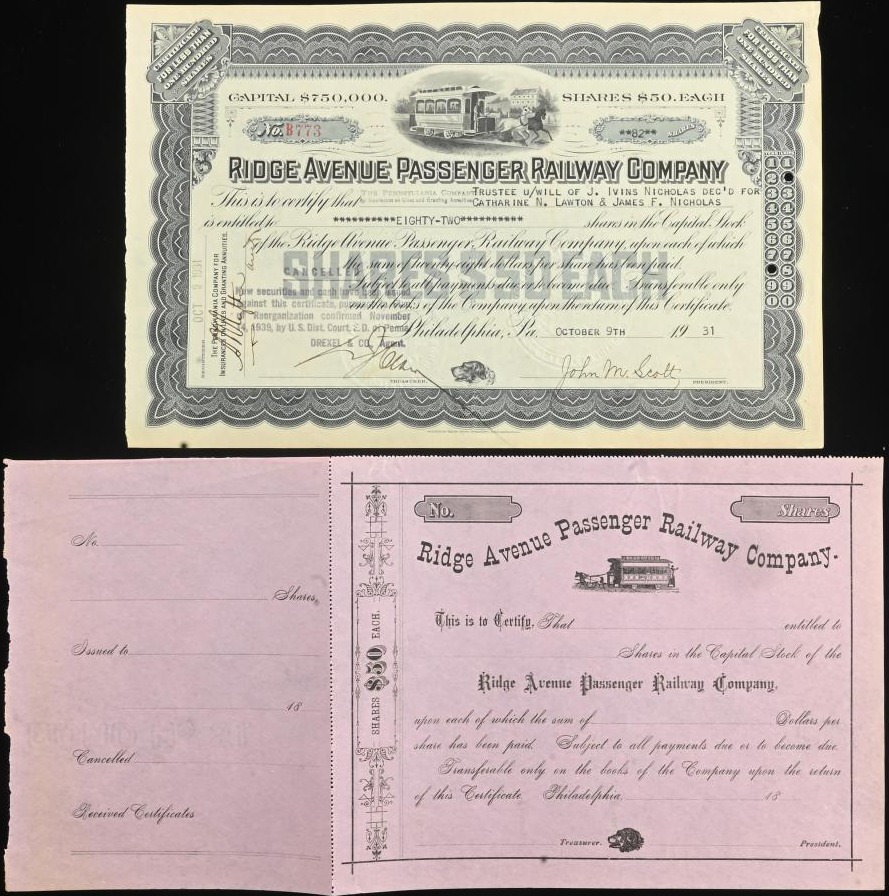 CERTIFICATE FOR LESS THAN ONE HUNDRED SHARES
CERTIFICATE FOR LESS THAN ONE HUNDRED SHARES
CAPITAL $750,000.
SHARES $50. EACH
No. B773
**82** SHARES
RIDGE AVENUE PASSENGER RAILWAY COMPANY
This is to certify that THE PENNSYLVANIA COMPANY TRUSTEE U/WILL OF J. IVINS NICHOLAS DEC'D FOR
for Insurances on Lives and Granting Annuities CATHARINE N. LAWTON & JAMES F. NICHOLAS
is entitled to **********EIGHTY-TWO********** shares in the Capital Stock
of the Ridge Avenue Passenger Railway Company, upon each of which
the sum of twenty eight dollars per share has been paid.
Subject to all payments due or to become due. Transferable only
on the books of the Company upon the return of this Certificate.
Philadelphia, Pa. OCTOBER 9TH 19 31
SHARES $50 EACH
CANCELLED
New securities and cash have
against this certificate, pursuant
Reorganization confirmed November
14, 1939, by U. S. Dist. Court, E.D. of Penna.
DREXEL & CO., Agent.
OCT 9 1931
THE PENNSYLVANIA COMPANY FOR
INSURANCES ON LIVES AND GRANTING ANNUITIES.
TREASURER.
John M. Scott
PRESIDENT.
1 1
2
3 3
4 4
5 5
6 6
7 7
8
9 9
0 0
No.
Shares,
Issued to
18
Cancelled
Received Certificates
SHARES $50 EACH.
No.
Shares
Ridge Avenue Passenger Railway Company.
This is to Certify, That entitled to
Shares in the Capital Stock of the
Ridge Avenue Passenger Railway Company,
upon each of which the sum of Dollars per
share has been paid. Subject to all payments due or to become due.
Transferable only on the books of the Company upon the return
of this Certificate. Philadelphia, 18
Treasurer.
President.